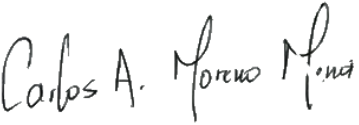 Carlos A. Moreno Mina